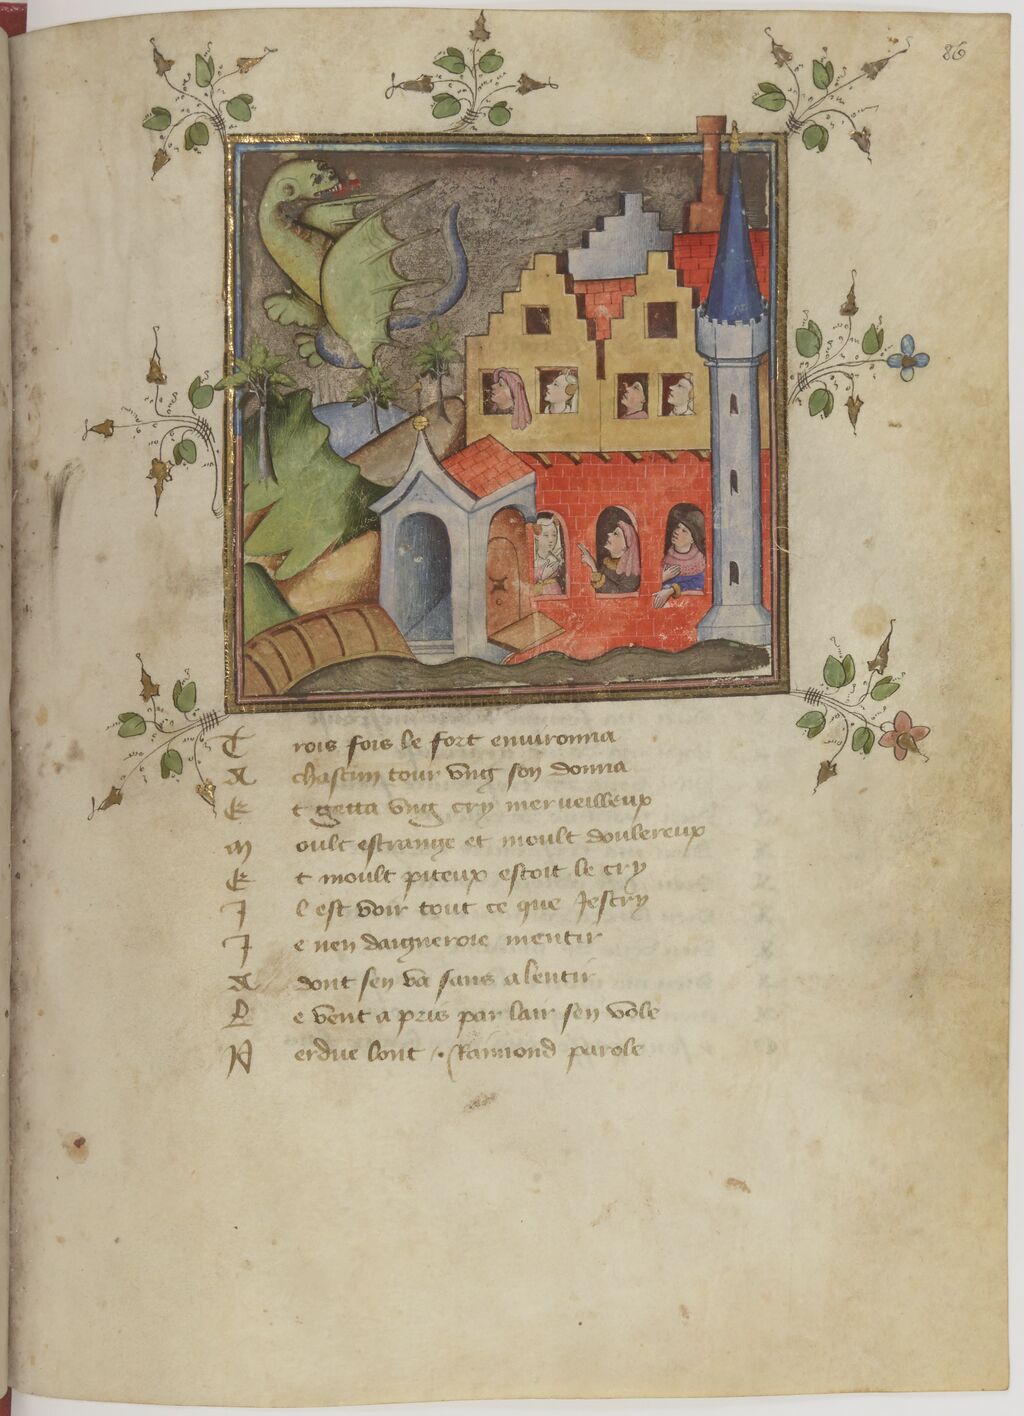 86
Trois fois le fort environna
A chascun tour ung son donna
Et getta ung cry merveilleux
Moult estrange et moult doulereux
Et moult piteux estoit le cry
Il est voir tout ce que Jescry
Je nen daigneroie mentir
Adont sen va sans alentir
Le vent a pris par lair sen vole
Perdue lont Raimond parole